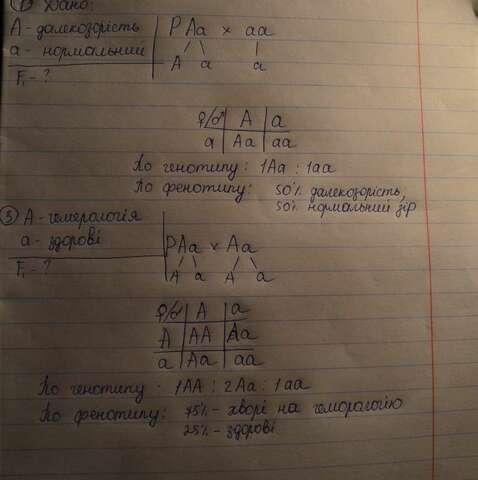 ① Дано:
А - далекозорість
а - нормальний
F₁ - ?
P Aa × aa
A a a
♀/♂ A a
a Aa aa
По генотипу: 1Aa : 1aa
По фенотипу: 50% далекозорість,
50% нормальний зір
③ А - гемерологія
а - здорові
F₁ - ?
P Aa × Aa
A a A a
♀/♂ A a
A AA Aa
a Aa aa
По генотипу - 1AA : 2Aa : 1aa
По фенотипу: 75% - хворі на геморологію
25% - здорові